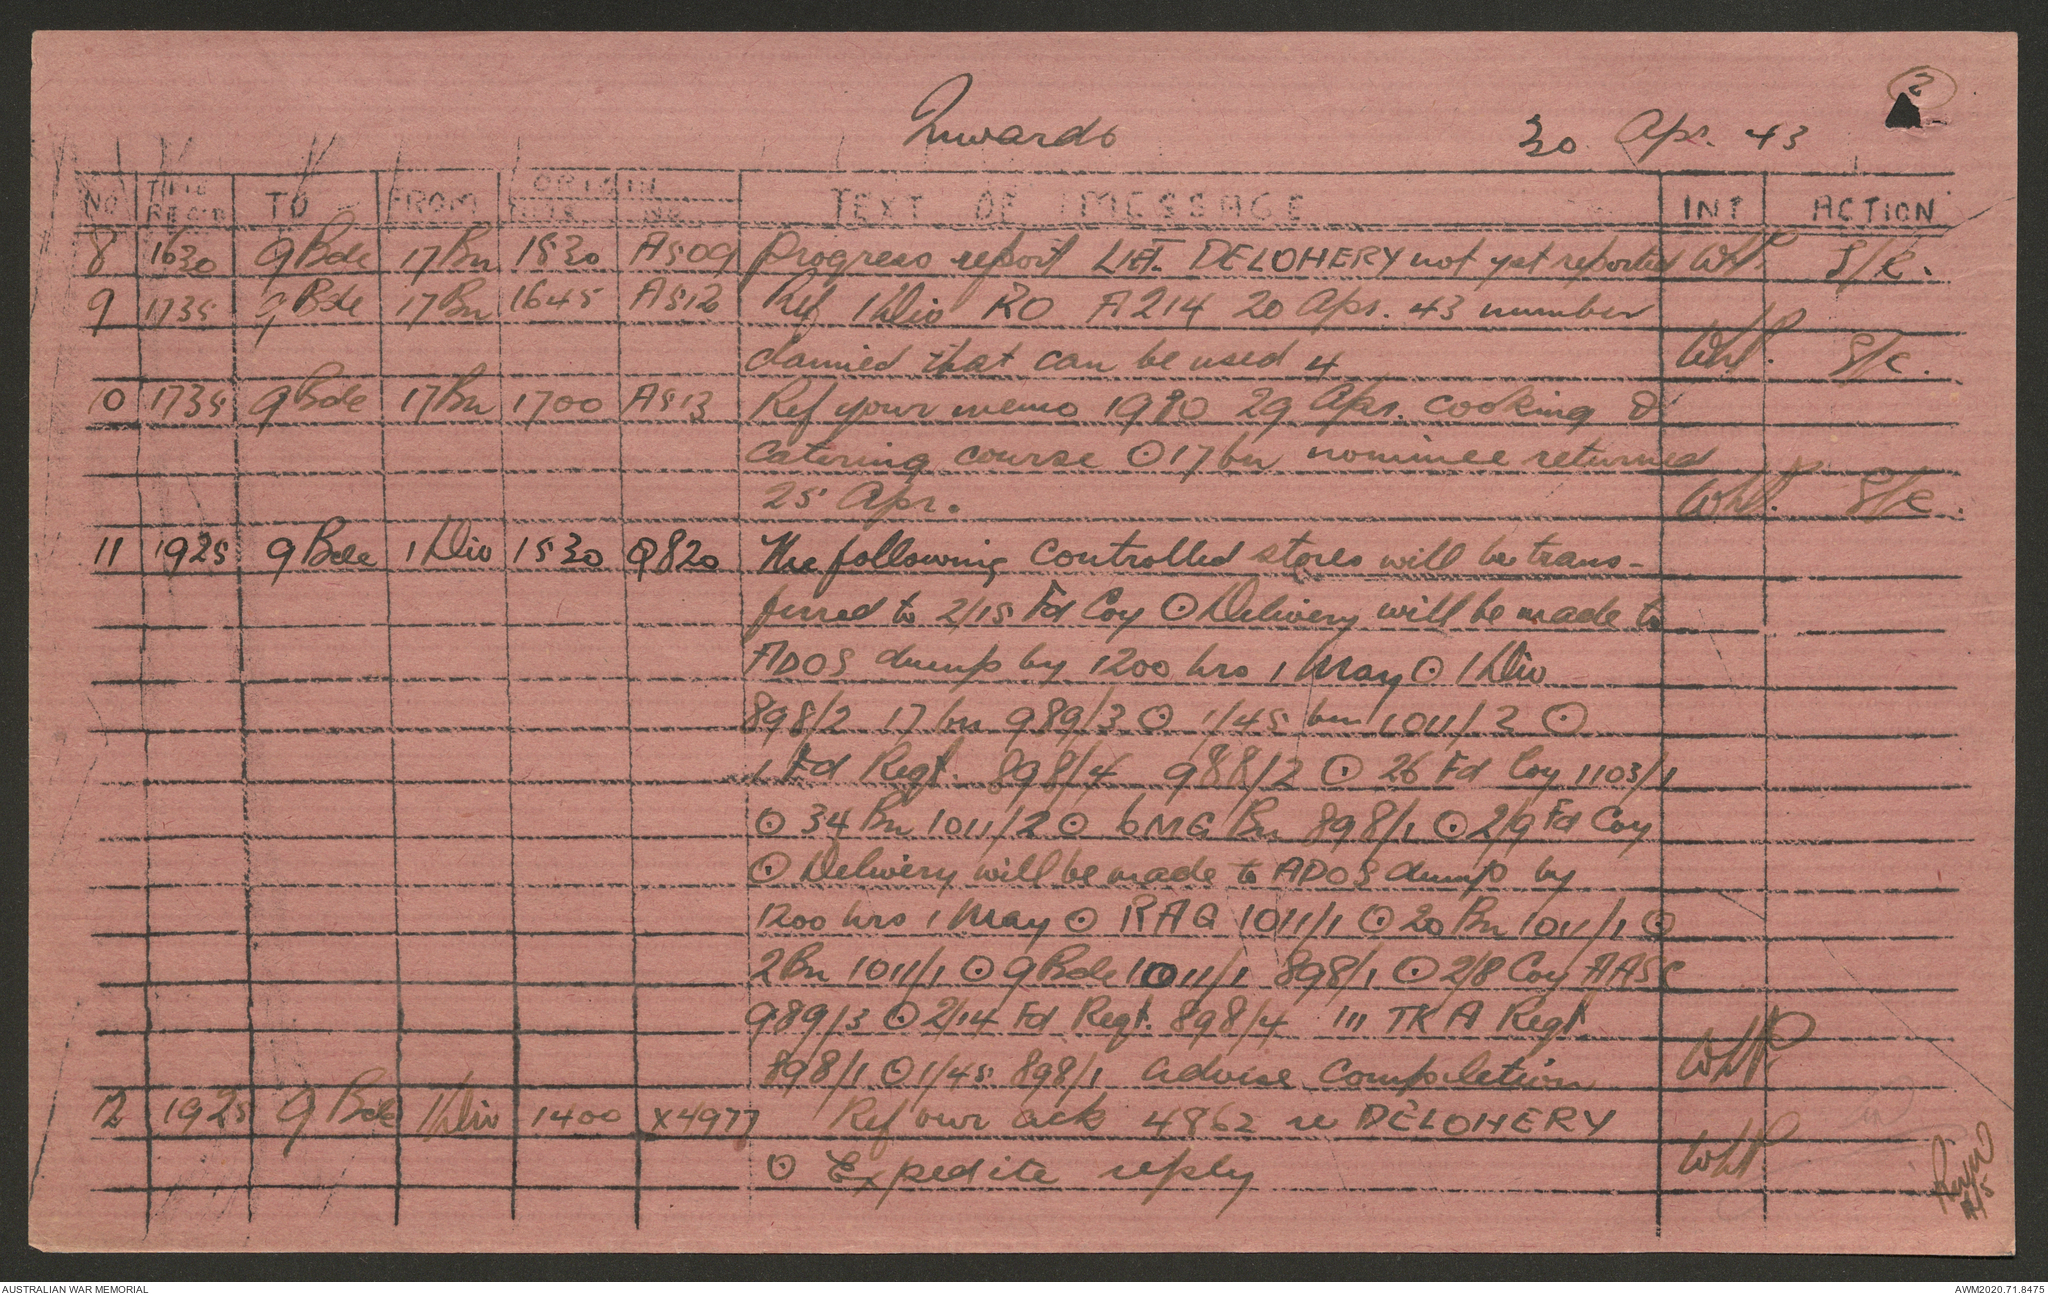 2
Inwards 30 Apr. 43
NO TIME REC'D TO FROM ORIGIN NO TEXT OF MESSAGE INT ACTION
8 1630 9 Bde 17 Bn 1530 A509 Progress report LIET. DELOHERY not yet reported WhP. S/C.
9 1735 9 Bde 17 Bn 1645 A512 Ref 1 Div RO A214 20 Apr. 43 number
claimed that can be used 4 WhP. S/C.
10 1735 9 Bde 17 Bn 1700 A513 Ref your memo 1980 29 Apr. cooking &
catering course ⊙ 17 bn nominee returned
25 Apr. WhP. S/C.
11 1925 9 Bde 1 Div 1530 Q820 The following controlled stores will be trans-
ferred to 2/15 Fd Coy ⊙ Delivery will be made to
ADOS dump by 1200 hrs 1 May ⊙ 1 Div
898/2 17 bn 989/3 ⊙ 1/45 bn 1011/2 ⊙
1 Fd Regt. 898/4 988/2 ⊙ 26 Fd Coy 1103/1
⊙ 34 Bn 1011/2 ⊙ 6 MG Bn 898/1 ⊙ 2/9 Fd Coy
⊙ Delivery will be made to ADOS dump by
1200 hrs 1 May ⊙ RAG 1011/1 ⊙ 20 Bn 1011/1 ⊙
2 Bn 1011/1 ⊙ 9 Bde 1011/1 898/1 ⊙ 2/8 Coy AASC
989/3 ⊙ 2/14 Fd Regt. 898/4 111 TK A Regt
898/1 ⊙ 1/45 898/1 advise completion WhP
12 1925 9 Bde 1 Div 1400 X4977 Ref our ack 4862 re DELOHERY
⊙ Expedite reply WhP
AUSTRALIAN WAR MEMORIAL AWM2020.71.8475